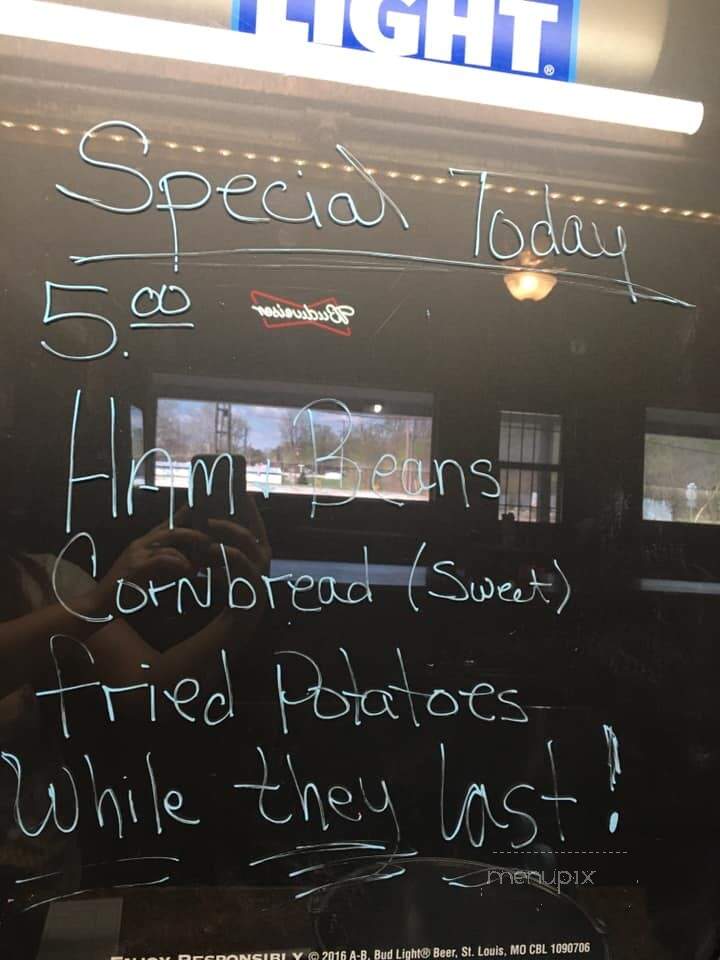 LIGHT®
Special Today
5.00
Budweiser
HAM & Beans
Cornbread (Sweet)
Fried Potatoes
While they last!
menupix
ENJOY RESPONSIBLY © 2016 A-B, Bud Light® Beer, St. Louis, MO CBL 1090706